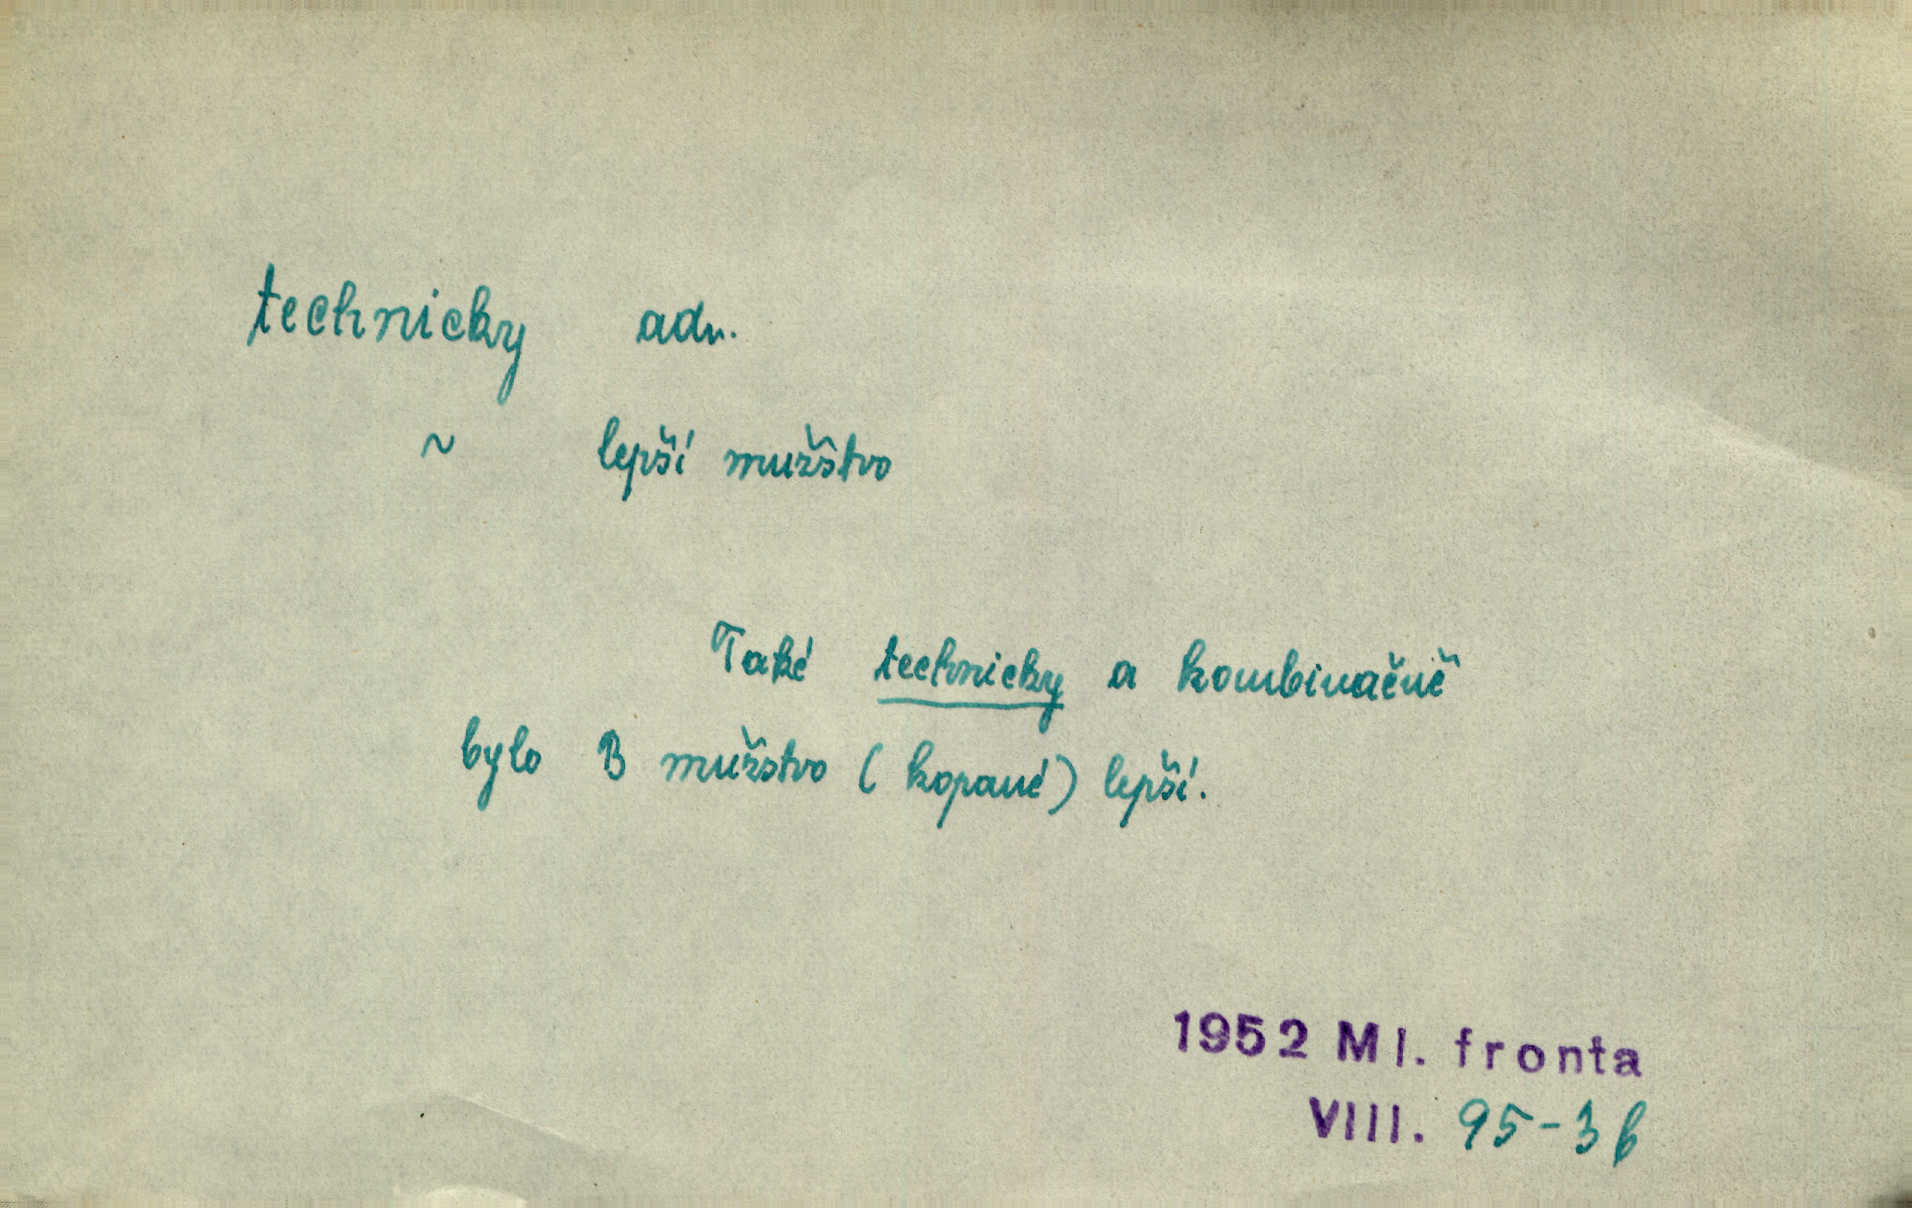 technicky adv.
~ lepší mužstvo
Také technicky a kombinačně
bylo B mužstvo (kopané) lepší.
1952 Ml. fronta
VIII. 95-3b